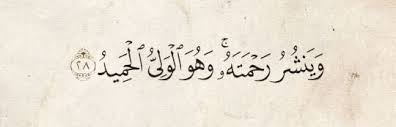 وَيَنشُرُ رَحْمَتَهُۥ ۚ وَهُوَ ٱلْوَلِىُّ ٱلْحَمِيدُ ٢٨